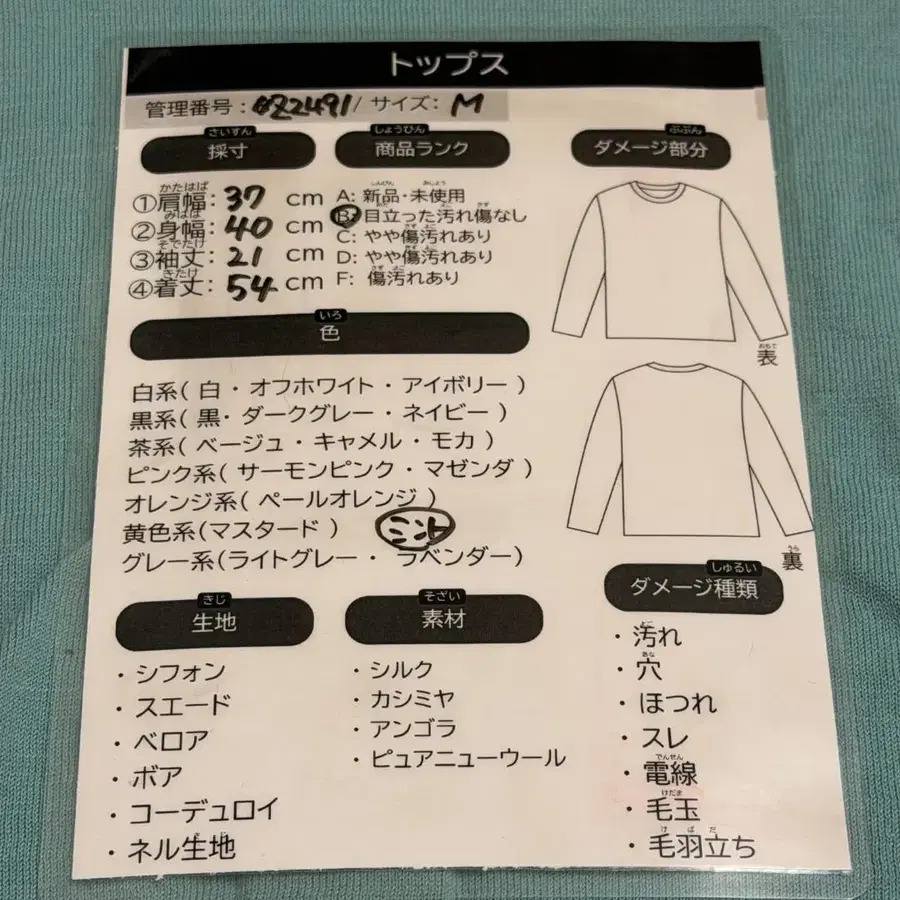 トップス
管理番号: 0Z2491/ サイズ: M
さいすん
採寸
しょうひん
商品ランク
ぶぶん
ダメージ部分
かたはば
①肩幅: 37 cm
みはば
②身幅: 40 cm
そでたけ
③袖丈: 21 cm
きたけ
④着丈: 54 cm
A: 新品・未使用
B: 目立った汚れ傷なし
C: やや傷汚れあり
D: やや傷汚れあり
F: 傷汚れあり
おもて
表
うら
裏
いろ
色
白系( 白・オフホワイト・アイボリー )
黒系( 黒・ダークグレー・ネイビー )
茶系( ベージュ・キャメル・モカ )
ピンク系( サーモンピンク・マゼンダ )
オレンジ系( ペールオレンジ )
黄色系(マスタード ) ミント
グレー系(ライトグレー・ ラベンダー)
きじ
生地
・シフォン
・スエード
・ベロア
・ボア
・コーデュロイ
・ネル生地
そざい
素材
・シルク
・カシミヤ
・アンゴラ
・ピュアニューウール
しゅるい
ダメージ種類
・汚れ
あな
・穴
・ほつれ
・スレ
でんせん
・電線
けだま
・毛玉
けばだ
・毛羽立ち